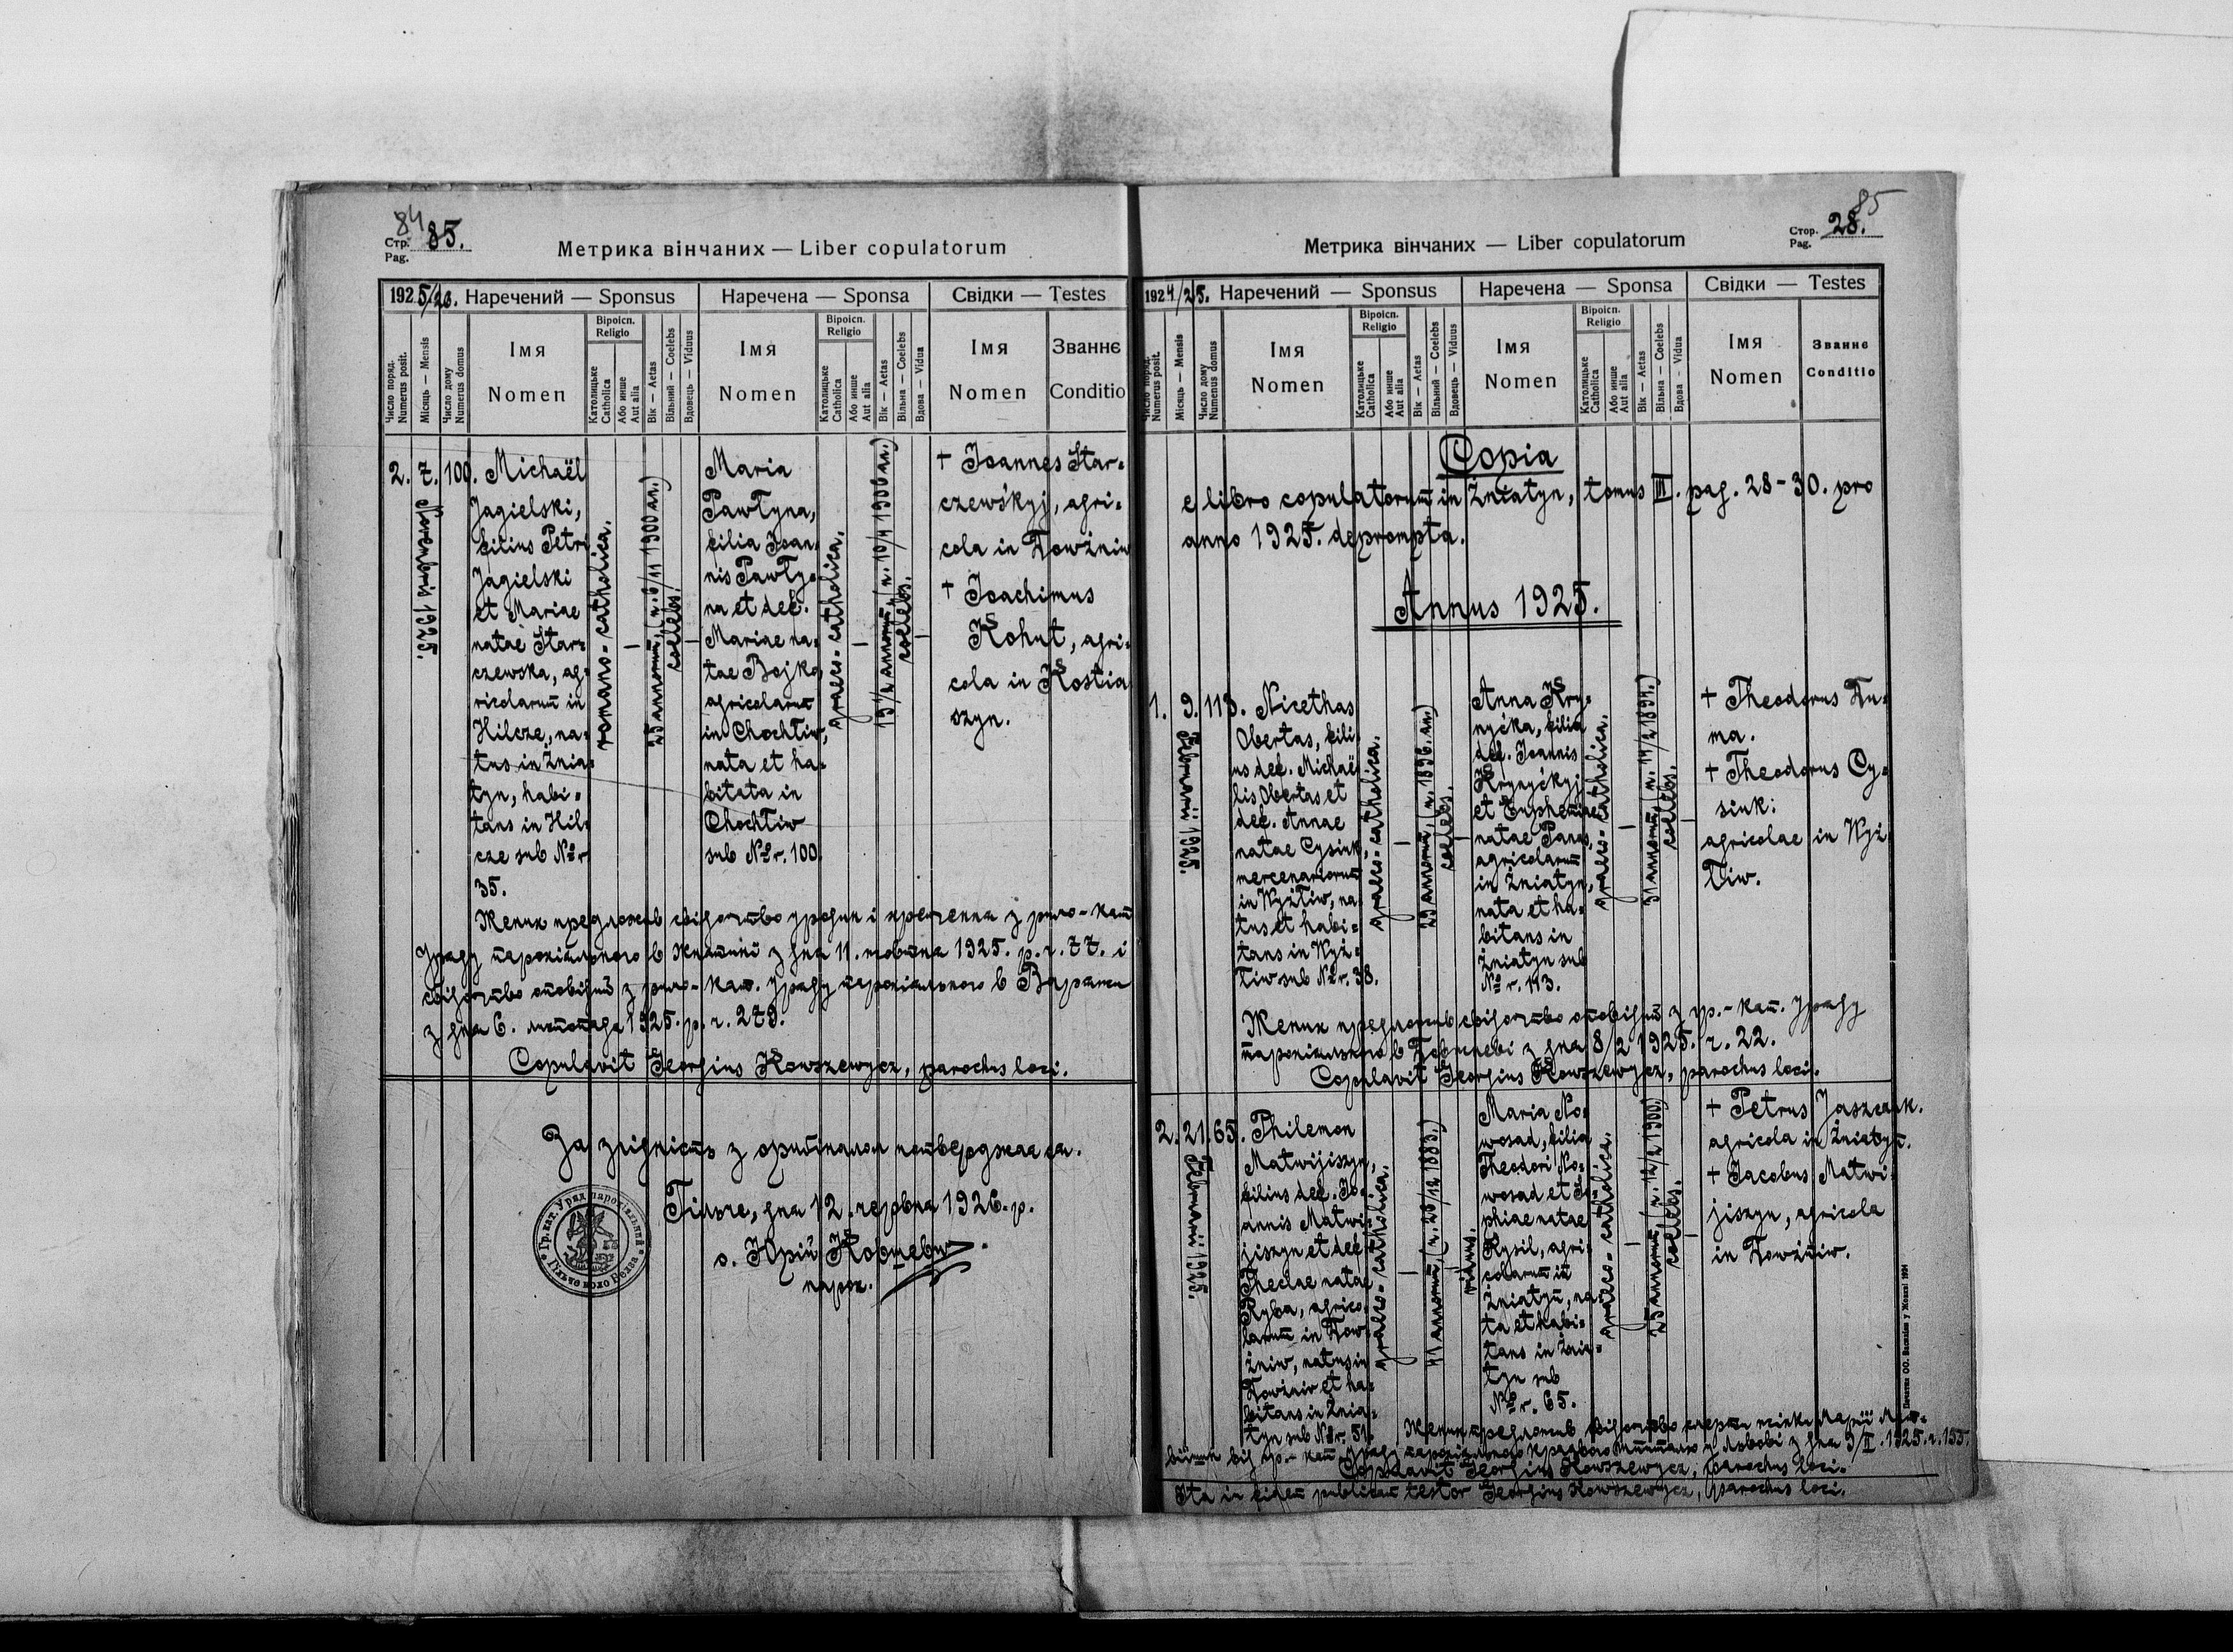 84
Стр. 85.
Pag.
Метрика вінчаних — Liber copulatorum
1925/26. Наречений — Sponsus
Наречена — Sponsa
Свідки — Testes
Число поряд.
Numerus posit.
Місяць — Mensis
Число дому
Numerus domus
Імя
Nomen
Віроісп.
Religio
Католицьке
Catholica
Або инше
Aut alia
Вік — Aetas
Вільний — Coelebs
Вдовець — Viduus
Імя
Nomen
Віроісп.
Religio
Католицьке
Catholica
Або инше
Aut alia
Вік — Aetas
Вільна — Coelebs
Вдова — Vidua
Імя
Nomen
Званнє
Conditio
2. 7. 100.
Novembris 1925.
Michaël
Jagielski,
filius Petri
Jagielski
et Mariae
natae Star=
czewska, ag=
ricolarum in
Hilcze, na=
tus in Żnia=
tyn, habi=
tans in Hil=
cze sub №r
35.
romano-catholica.
—
25 annorum, (n. 6/11 1900 an.)
coelebs.
—
Maria
Pawłyna,
filia Joan=
nis Pawły=
na et def.
Mariae na=
tae Bojko,
agricolarum
in Chochłiw,
nata et ha=
bitata in
Chochłiw
sub №r. 100.
graeco-catholica.
—
19½ annorum, (n. 10/4 1906 an.)
coelebs.
—
+ Joannes Star=
czewśkyj, agri=
cola in Łowżniw
+ Joachimus
Kohut, agri=
cola in Kostia
szyn.
Женик предложив свідоцтво уродин і хрещення з римо-кат
Уряду парохіяльного в Жнятині з дня 11. жовтня 1925. р. ч. 77. і
свідоцтво оповідий з римо-кат. уряду парохіяльного в Варяжи
з дня 6. листопада 1925. р. ч. 279.
Copulavit Georgius Kowszewycz, parochus loci.
За згідність з оригіналом потверджаєся.
Гільче, дня 12. червня 1926. р.
о. Юрій Ковшевич
парох.
Гр. кат. Уряд парохіяльний
85
Стор. 28.
Pag.
Метрика вінчаних — Liber copulatorum
1924/25. Наречений — Sponsus
Наречена — Sponsa
Свідки — Testes
Число поряд.
Numerus posit.
Місяць — Mensis
Число дому
Numerus domus
Імя
Nomen
Віроісп.
Religio
Католицьке
Catholica
Або инше
Aut alia
Вік — Aetas
Вільний — Coelebs
Вдовець — Viduus
Імя
Nomen
Віроісп.
Religio
Католицьке
Catholica
Або инше
Aut alia
Вік — Aetas
Вільна — Coelebs
Вдова — Vidua
Імя
Nomen
Званнє
Conditio
Copia
e libro copulatorum in Żniatyn, tomus III. pag. 28-30. pro
anno 1925. deprompta.
Annus 1925.
1. 9. 113.
Februarii 1925.
Nicethas
Obertas, fili=
us def. Michaë=
lis Obertas et
def. Annae
natae Cysink,
mercenariorum
in Wyżłiw, na=
tus et habi=
tans in Wyż=
łiw sub №r. 38.
graeco-catholica.
—
29 annorum, (n. 1896. an.)
coelebs.
—
Anna Kry=
nyćka, filia
def. Joannis
Krynyćkyj
et Euphemiae
natae Panas,
agricolarum
in Żniatyn,
nata et ha=
bitans in
Żniatyn sub
№r. 113.
graeco-catholica.
—
31 annorum, (n. 14/2 1894.)
coelebs.
—
+ Theodorus Du=
ma.
+ Theodorus Cy=
sink:
agricolae in Wyż
łiw.
Женик предложив свідоцтво оповідий з гр.-кат. уряду
парохіяльного в з дня 8/2 1925. ч. 22.
Copulavit Georgius Kowszewycz, parochus loci.
2. 21. 65.
Februarii 1925.
Philemon
Matwijiszyn,
filius def. Jo=
annis Matwi=
jiszyn et def.
Theclae natae
Ryba, agrico=
larum in Łow=
żniw, natus in
Łowżniw et ha=
bitans in Żnia=
tyn sub №r. 51.
graeco-catholica.
—
41 annorum, (n. 28/12 1883.)
viduus.
Maria No=
wosad, filia
Theodori No=
wosad et So=
phiae natae
Kysil, agri=
colarum in
Żniatyn, na=
ta et habi=
tans in Żnia=
tyn sub
№r. 65.
graeco-catholica.
—
25 annorum (n. 12/2 1900)
coelebs.
—
+ Petrus Jaszczuk.
agricola in Żniatyn.
+ Jacobus Matwi=
jiszyn, agricola
in Łowżniw.
Женик предложив свідоцтво смерти жінки Марії
від гр.-кат. уряду парохіяльного краєвого шпиталю у Львові з дня 9/II. 1925. ч. 155.
Copulavit Georgius Kowszewycz, parochus loci.
Ita in fidem publicam testor Georgius Kowszewycz, parochus loci.
Печатня ОО. Василіян у Жовкві 1924